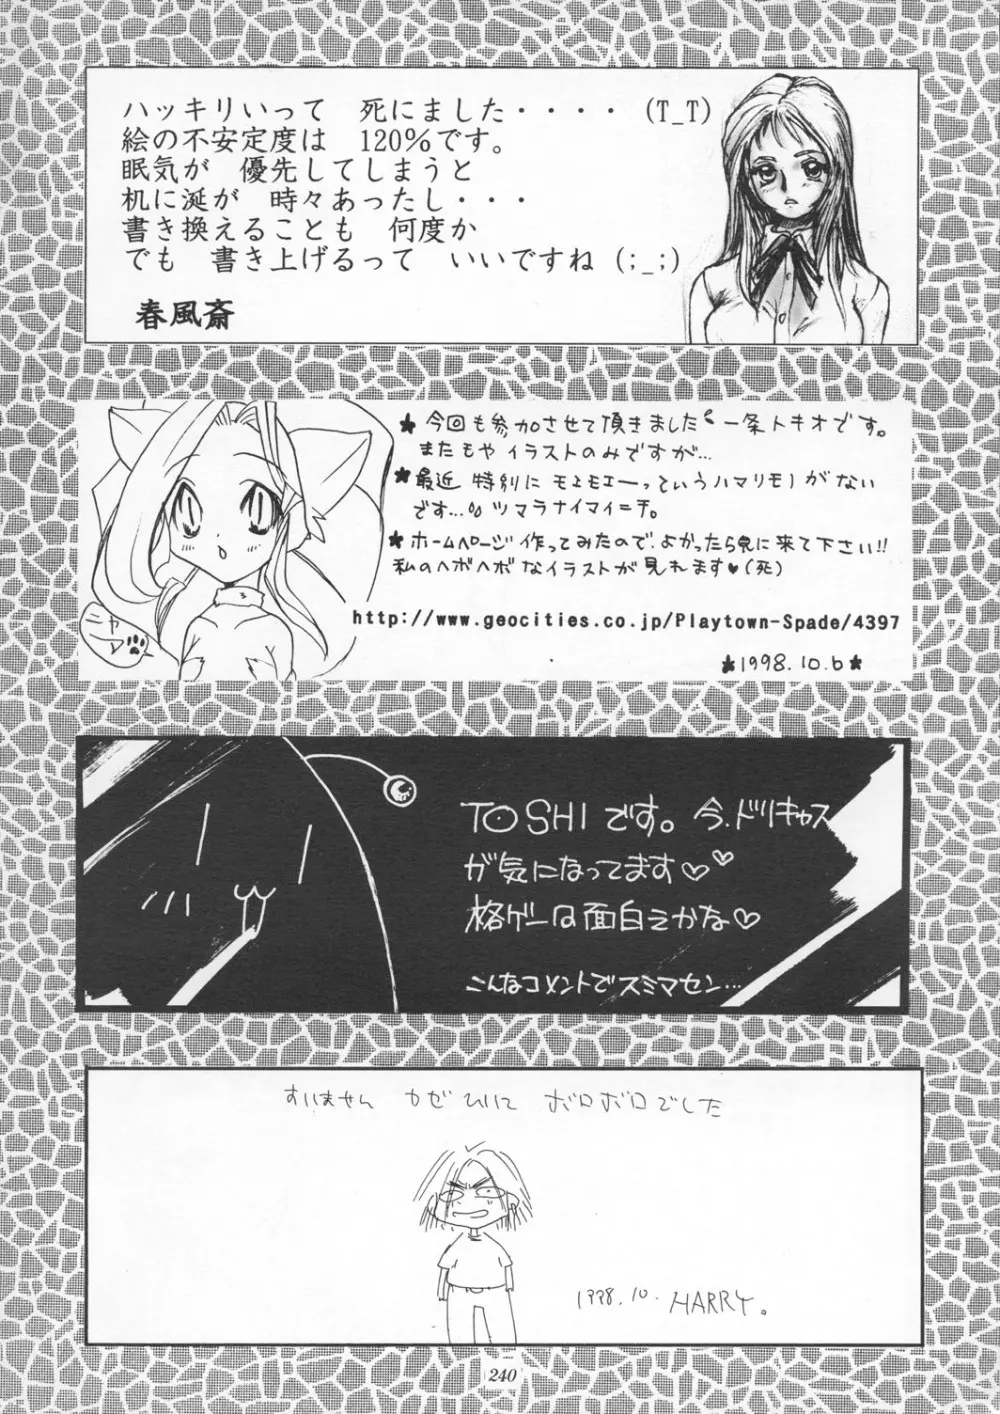 ハッキリいって　死にました・・・・ (T_T)
絵の不安定度は　120%です。
眠気が　優先してしまうと
机に涎が　時々あったし・・・
書き換えることも　何度か
でも　書き上げるって　いいですね (;_;)
春風斎
★今回も参加させて頂きました 一条トキオです。
またもや イラストのみですが…
★最近 特別に モエモエーっていうハマリモノがない
です…。ツマラナイマイニチ。
★ホームページ作ってみたので、よかったら見に来て下さい!!
私のヘボヘボなイラストが見れます♥(死)
ニャ
マ
http://www.geocities.co.jp/Playtown-Spade/4397
★1998.10.6★
TOSHIです。今、ドリキャス
が気になってます♡♡
格ゲーは面白そかな♡
こんなコメントでスミマセン…
すいません カゼひいて ボロボロでした
1998.10. HARRY。
240